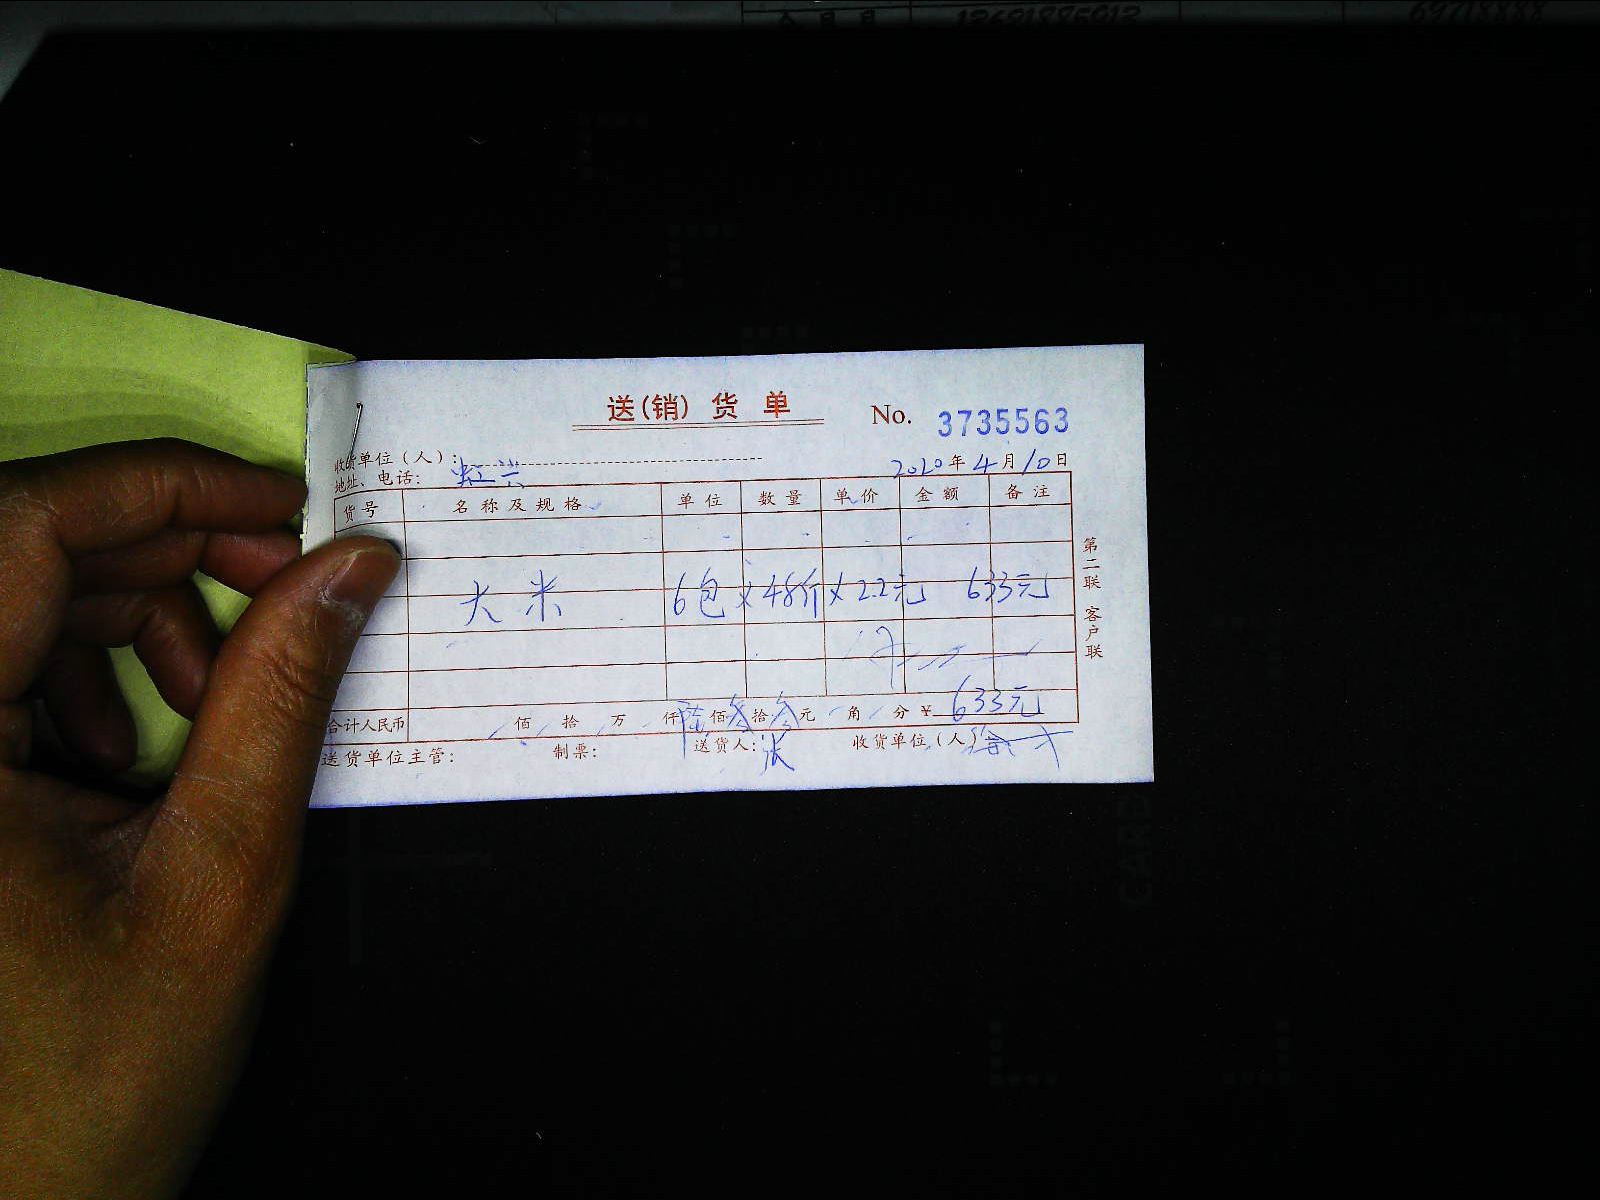 送(销)货单
No. 3735563
收货单位(人):
2020年4月10日
地址、电话: 虹兴
货号 名称及规格 单位 数量 单价 金额 备注
大米 6包 × 48斤 × 2.2元 633元
合计人民币 佰 拾 万 仟 陆佰叁拾叁元 角 分 ¥ 633元
送货单位主管: 制票: 送货人: 张 收货单位(人)
第二联 客户联
CARE